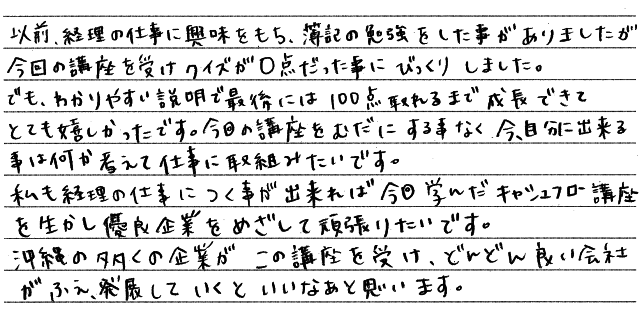 以前、経理の仕事に興味をもち、簿記の勉強をした事がありましたが
今回の講座を受けクイズが0点だった事にびっくりしました。
でも、わかりやすい説明で最後には100点取れるまで成長できて
とても嬉しかったです。今回の講座をむだにする事なく今、自分に出来る
事は何か考えて仕事に取組みたいです。
私も経理の仕事につく事が出来れば今回学んだキャッシュフロー講座
を生かし優良企業をめざして頑張りたいです。
沖縄の多くの企業がこの講座を受け、どんどん良い会社
がふえ、発展していくといいなあと思います。